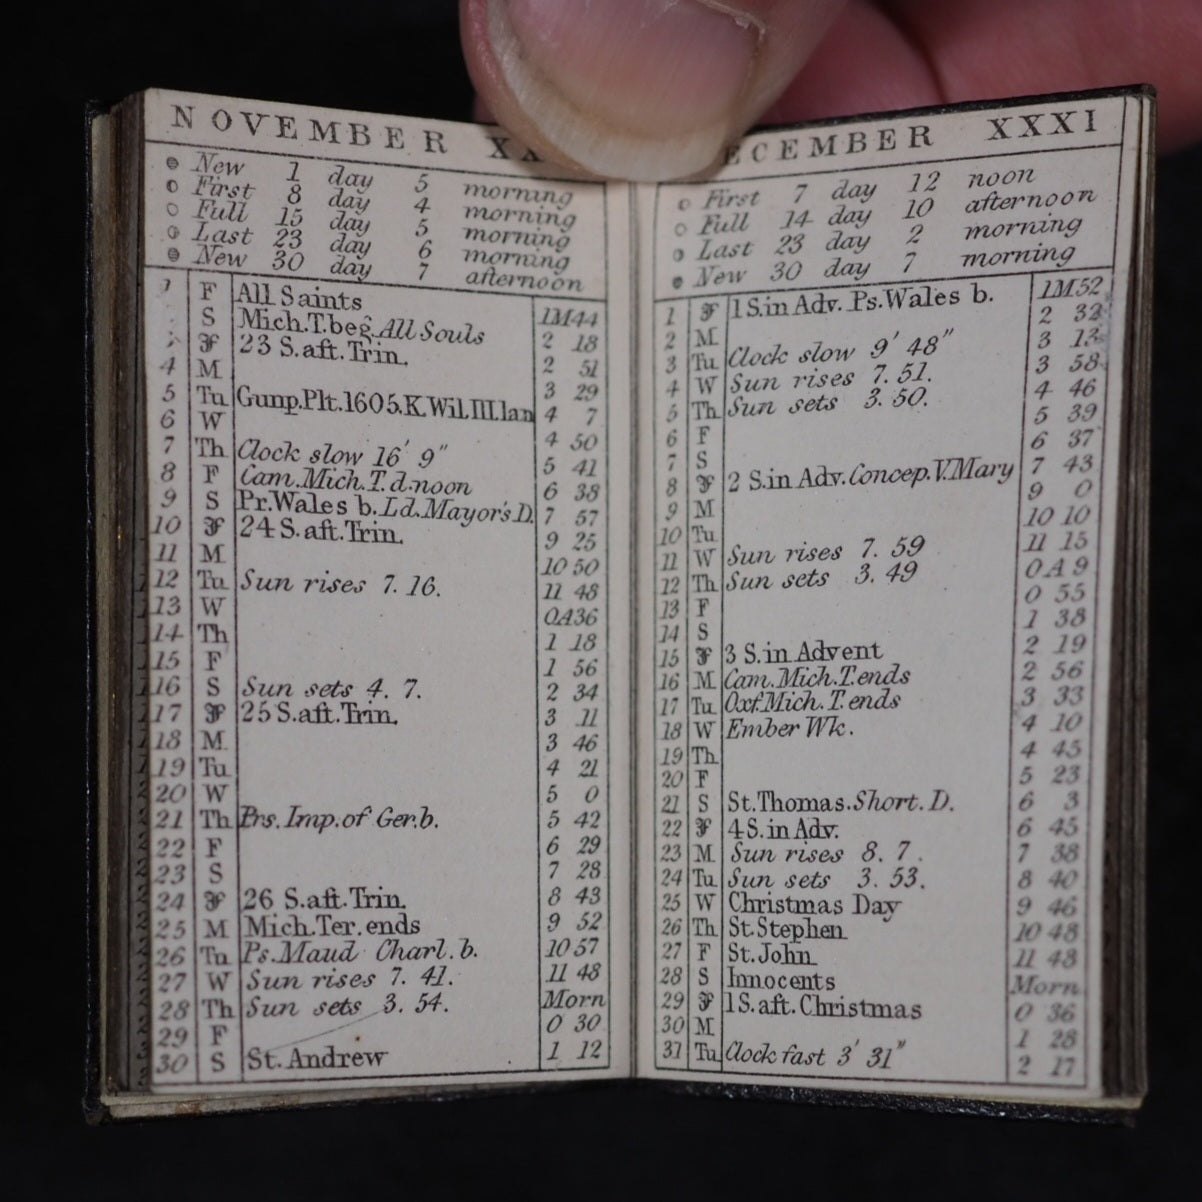 NOVEMBER XX
New 1 day 5 morning
First 8 day 4 morning
Full 15 day 5 morning
Last 23 day 6 morning
New 30 day 7 afternoon
1 F All Saints 1M44
S Mich.T.beg. All Souls 2 18
S 23 S.aft.Trin. 2 51
4 M 3 29
5 Tu Gunp.Plt.1605.K.Wil.III.lan 4 7
6 W 4 50
7 Th Clock slow 16' 9" 5 41
8 F Cam.Mich.T.d.noon 6 38
9 S Pr.Wales b. Ld.Mayor's D. 7 57
10 S 24 S.aft.Trin. 9 25
11 M 10 50
12 Tu Sun rises 7.16. 11 48
13 W 0A36
14 Th 1 18
15 F 1 56
16 S Sun sets 4.7. 2 34
17 S 25 S.aft.Trin. 3 11
18 M 3 46
19 Tu 4 21
20 W 5 0
21 Th Prs.Imp.of Ger.b. 5 42
22 F 6 29
23 S 7 28
24 S 26 S.aft.Trin. 8 43
25 M Mich.Ter.ends 9 52
26 Tu Ps.Maud Charl.b. 10 57
27 W Sun rises 7.41. 11 48
28 Th Sun sets 3.54. Morn
29 F 0 30
30 S St.Andrew 1 12
ECEMBER XXXI
First 7 day 12 noon
Full 14 day 10 afternoon
Last 23 day 2 morning
New 30 day 7 morning
1 S 1 S.in Adv. Ps.Wales b. 1M52
2 M 2 32
3 Tu Clock slow 9' 48" 3 13
4 W Sun rises 7.51. 3 58
5 Th Sun sets 3.50. 4 46
6 F 5 39
7 S 6 37
8 S 2 S.in Adv. Concep.V.Mary 7 43
9 M 9 0
10 Tu 10 10
11 W Sun rises 7.59 11 15
12 Th Sun sets 3.49 0A9
13 F 0 55
14 S 1 38
15 S 3 S.in Advent 2 19
16 M Cam.Mich.T.ends 2 56
17 Tu Oxf.Mich.T.ends 3 33
18 W Ember Wk. 4 10
19 Th 4 45
20 F 5 23
21 S St.Thomas. Short.D. 6 3
22 S 4 S.in Adv. 6 45
23 M Sun rises 8.7. 7 38
24 Tu Sun sets 3.53. 8 40
25 W Christmas Day 9 46
26 Th St.Stephen 10 48
27 F St.John 11 48
28 S Innocents Morn
29 S 1 S.aft.Christmas 0 36
30 M 1 28
31 Tu Clock fast 3' 31" 2 17